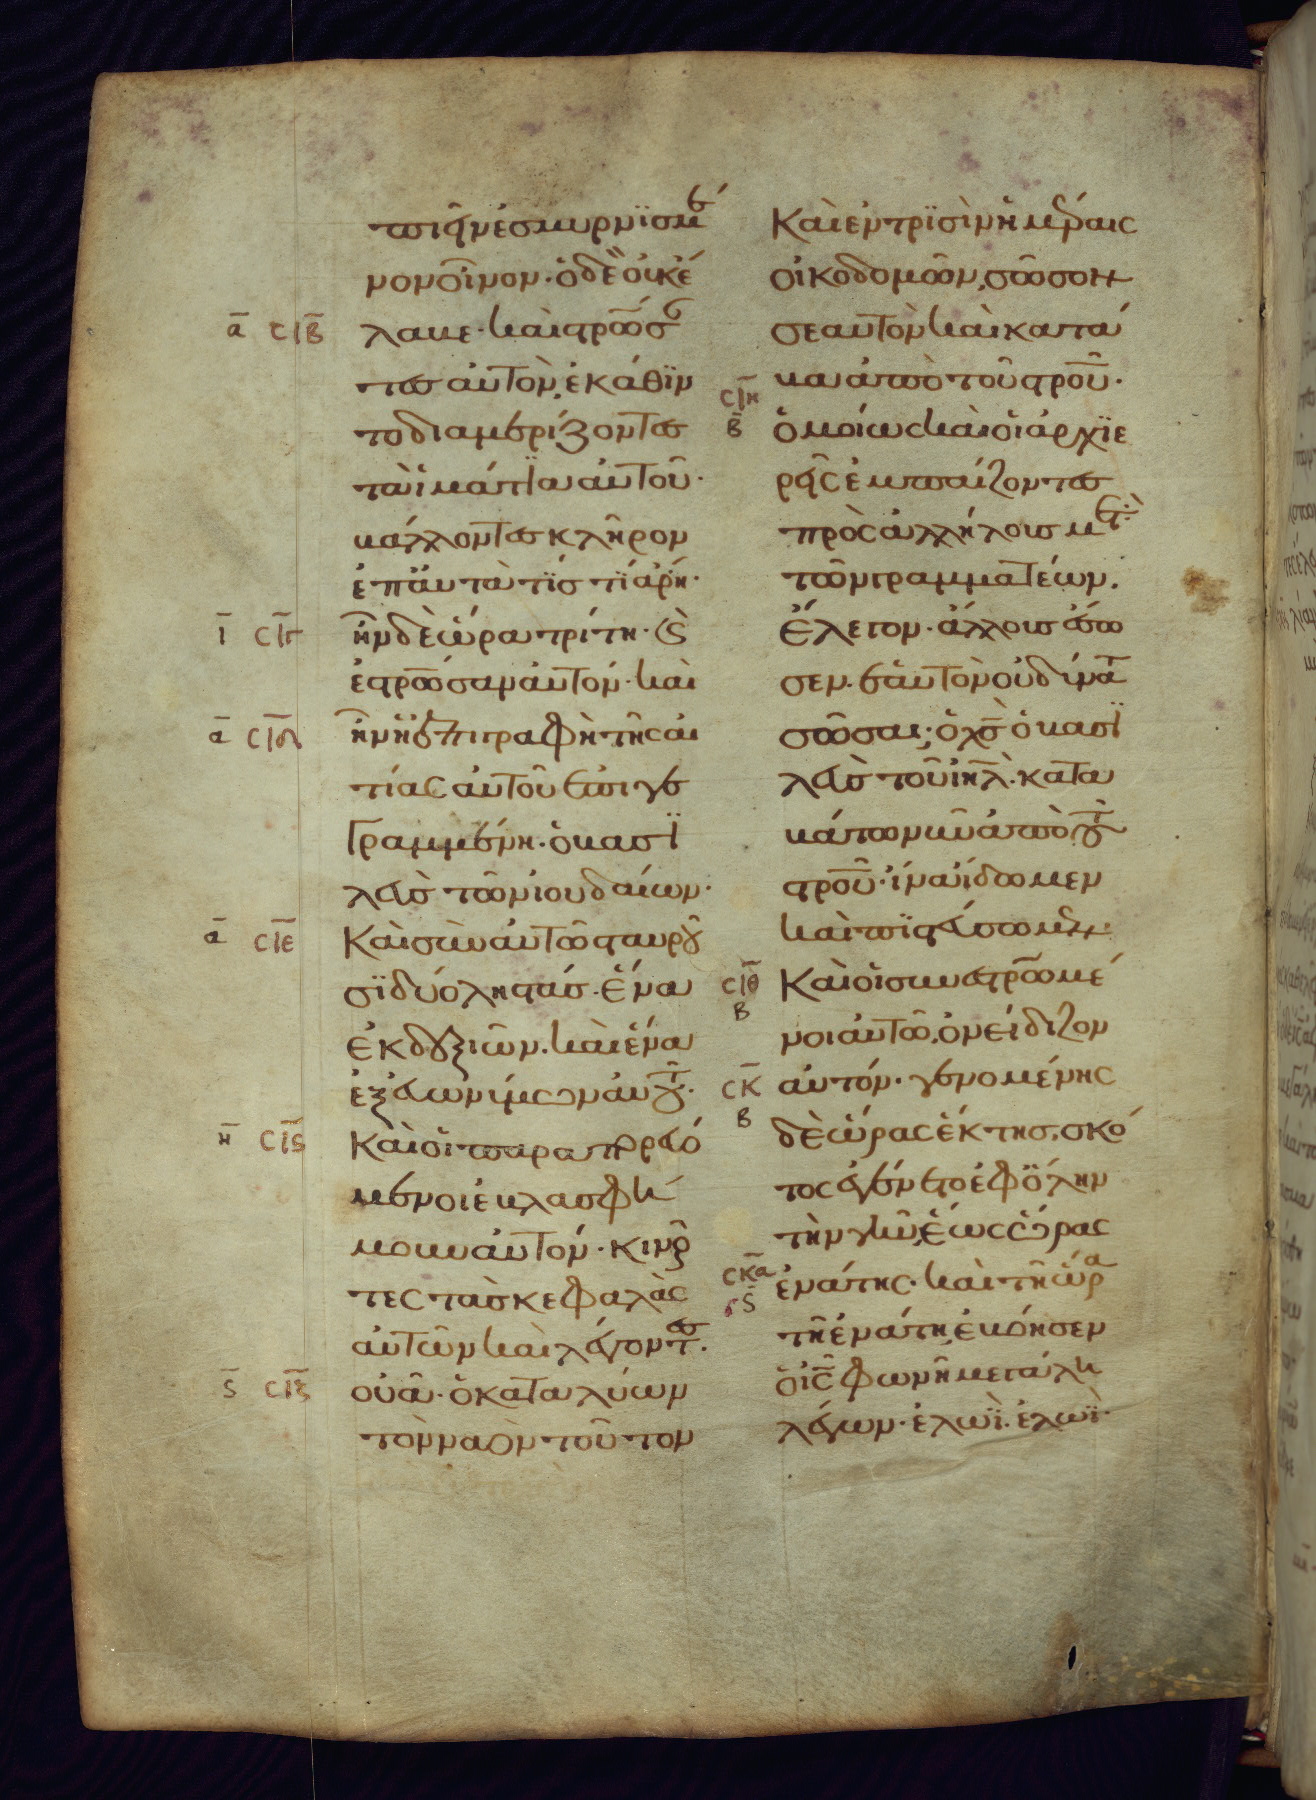 πιεῖν ἐσμυρνϊσμέ
νον οἶνον· ὁ δὲ οὐκ έ
ᾱ ϲιβ̄ λαβε· καὶ στρ̅ώσαν
τες αὐτὸν, ἐκάθϊν
το διαμερίζοντες
τὰ ἱμάτϊα αὐτοῦ·
βάλλοντες κλῆρον
ἐπ' αὐτὰ τίς τί ἄρη·
ῑ ϲιγ̄ ἦν δὲ ὥρα τρίτη· καὶ
ἐστρ̅ώσαν αὐτόν· καὶ
ᾱ ϲιδ̄ ἦν ἡ ἐπιγραφὴ τῆς αἰ
τίας αὐτοῦ ἐπιγε
Γραμμένη· ὁ βασϊ
λεὺς τῶν ἰουδαίων·
ᾱ ϲιε̄ Καὶ σὺν αὐτῶ σταυροῦ
σϊ δύο ληστάς· ἕνα
ἐκ δεξιῶν· καὶ ἕνα
ἐξ εὐωνύμων αὐτοῦ·
η̄ ϲις̄ Καὶ οἱ παραπορευό
μενοι ἐβλασφή
μουν αὐτόν· κινοῦν
τες τὰς κεφαλὰς
αὐτῶν καὶ λέγοντες.
ς̄ ϲιζ̄ οὐᾶ· ὁ καταλύων
τὸν ναὸν τοῦτον
Καὶ ἐν τρϊσὶν ἡμέραις
οἰκοδομῶν, σῶσον
σεαυτὸν καὶ κατά
βα ἀπὸ τοῦ στρ̅οῦ·
ϲιη̄ β̄ ὁμοίως καὶ οἱ ἀρχϊε
ρεῖς ἐμπαίζοντες
πρὸς ἀλλήλους μετὰ
τῶν γραμματέων.
ἔλεγον· ἄλλους ἔσω
σεν· ἑαυτὸν οὐ δύνατ
σῶσαι· ὁ χ̅ς̅ ὁ βασϊ
λεὺς τοῦ ἰη̅λ̅· κατα
βάτω νῦν ἀπὸ τοῦ
στρ̅οῦ· ἵνα ἴδωμεν
καὶ πϊστεύσωμεν
ϲιθ̄ β Καὶ οἱ συνστρ̅ωμέ
νοι αὐτῶ, ὀνείδιζον
ϲκ̄ β αὐτόν· γενομένης
δὲ ὥρας ἕκτης, σκό
τος ἐγένετο ἐφ' ὅλην
τὴν γῆν, ἕως ὥρας
ϲκᾱ ς̄ ἐνάτης· καὶ τῆ ὥρα
τῆ ἐνάτη, ἐβόησεν
ὁ ι̅ς̅ φωνῆ μεγάλη
λέγων· ἐλωῒ· ἐλωῒ·